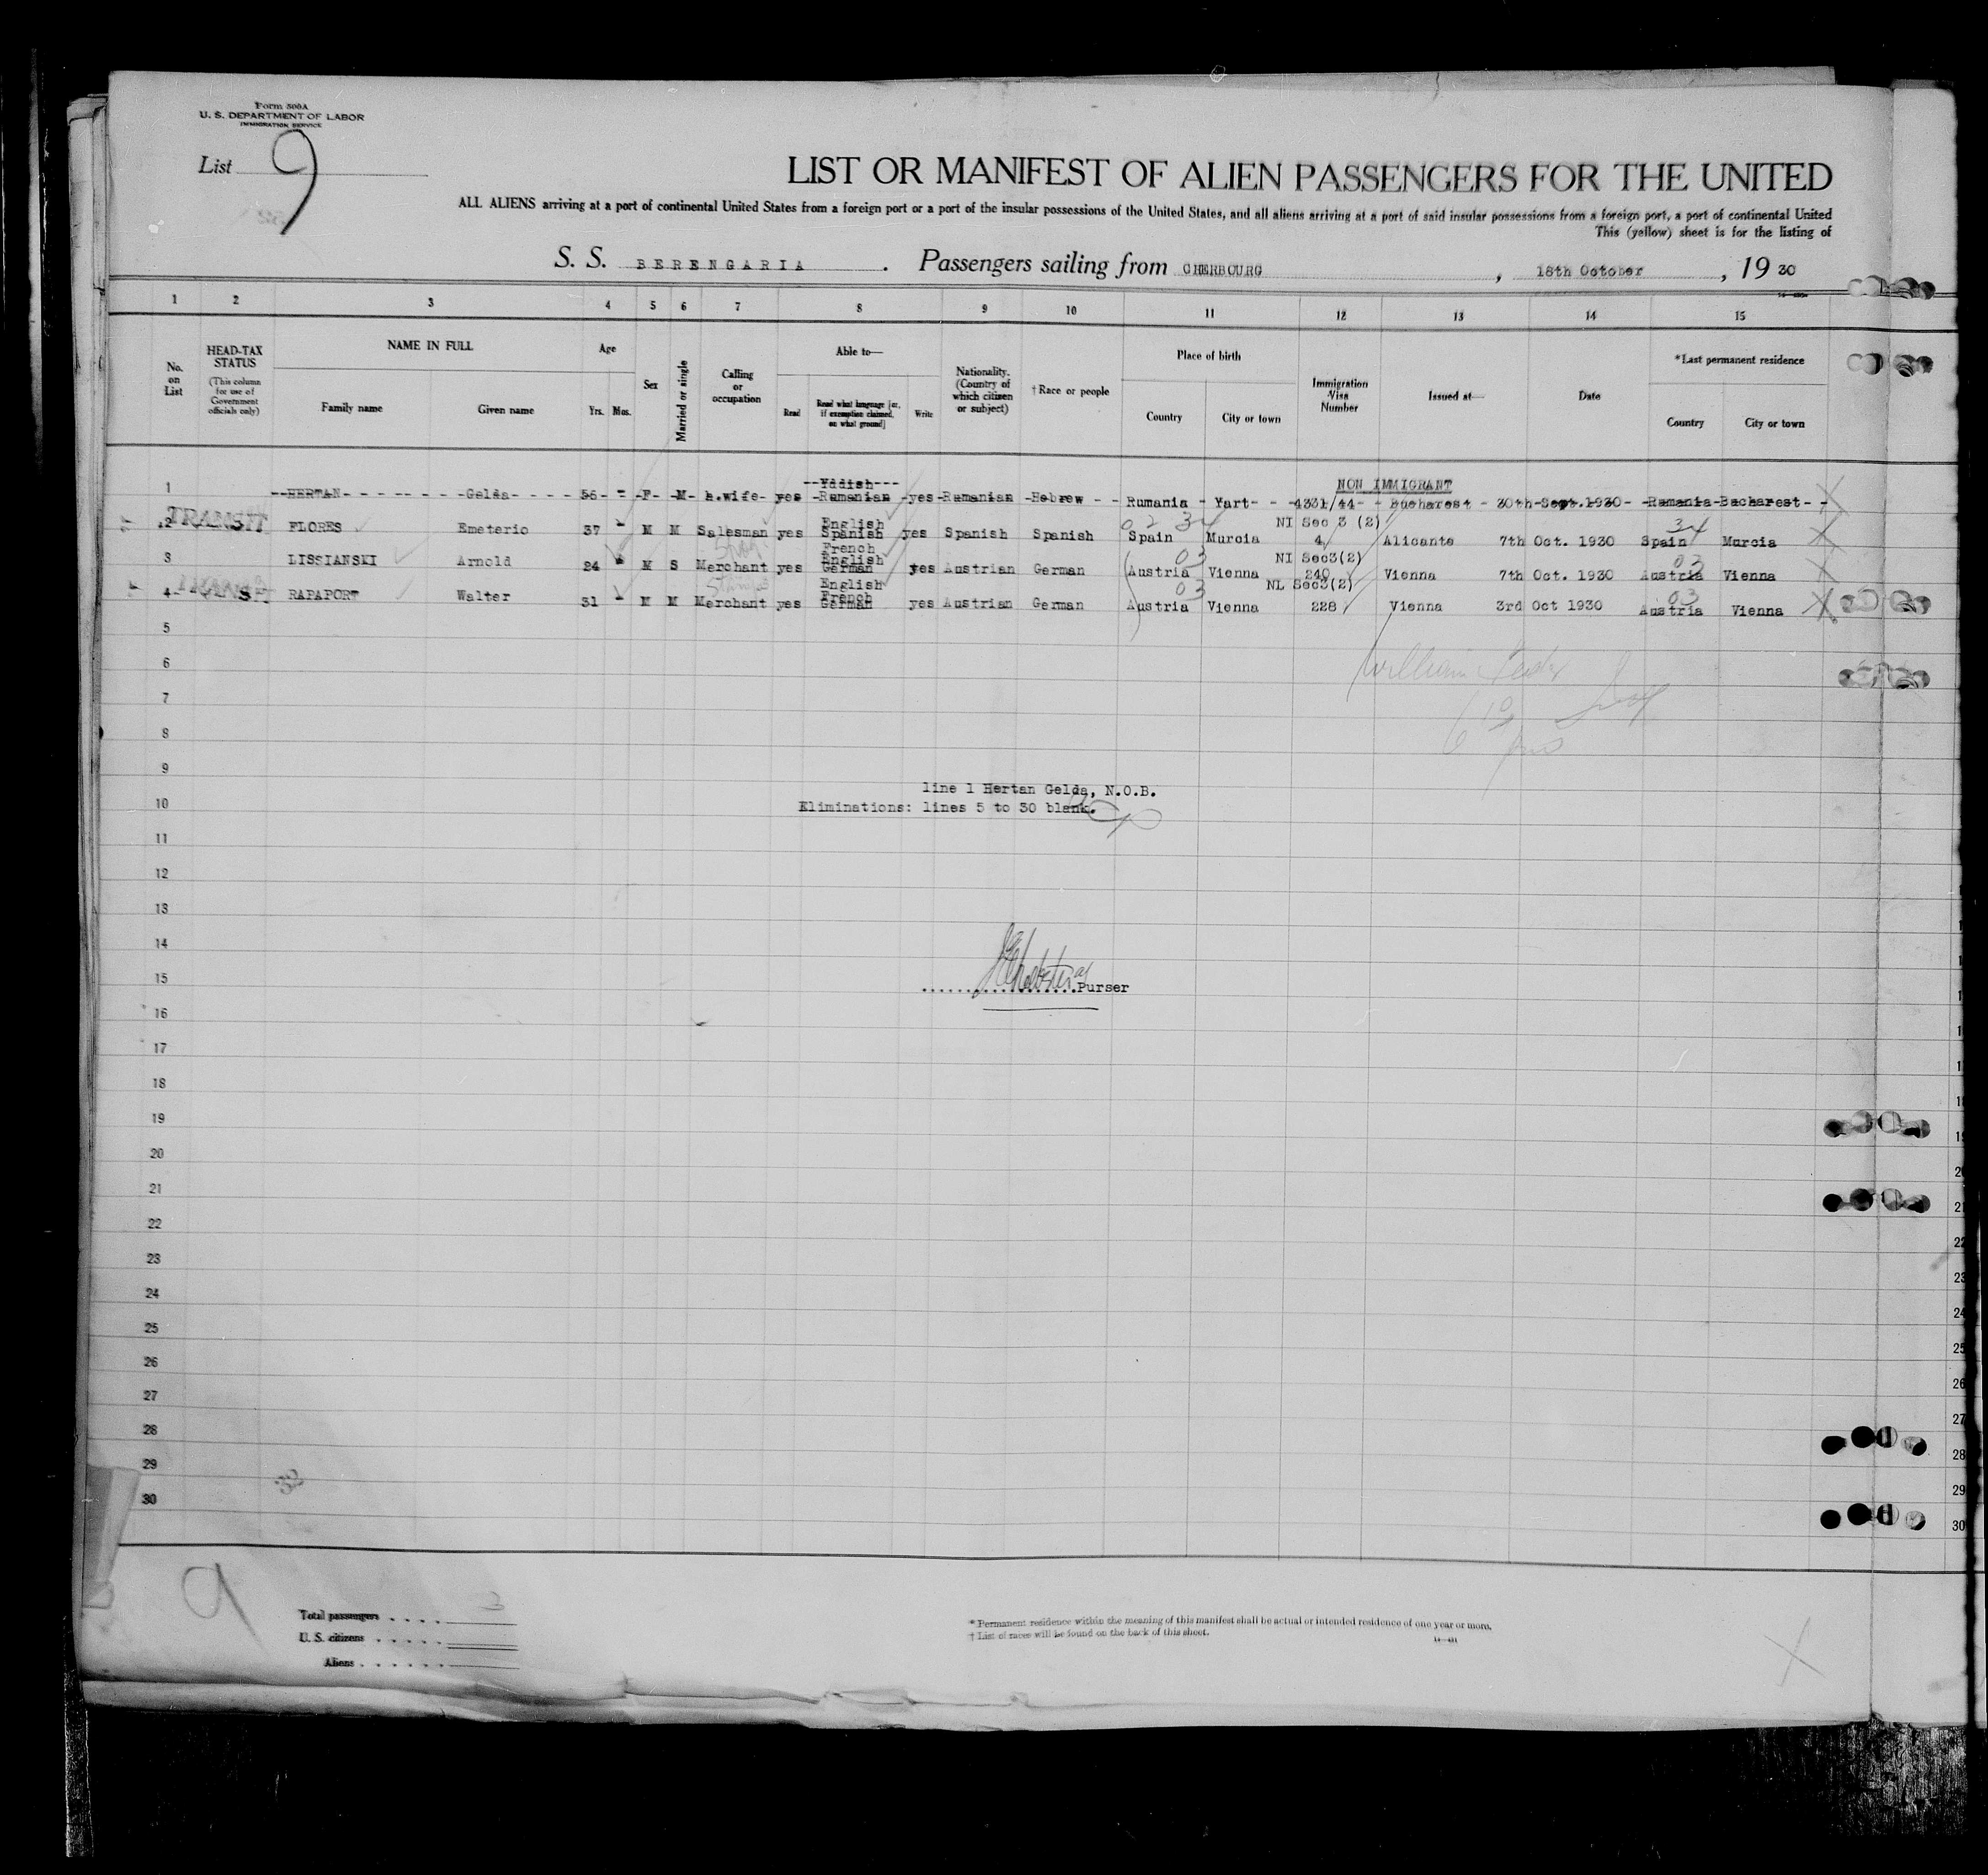 Form 500A
U. S. DEPARTMENT OF LABOR
IMMIGRATION SERVICE
List 9
LIST OR MANIFEST OF ALIEN PASSENGERS FOR THE UNITED
ALL ALIENS arriving at a port of continental United States from a foreign port or a port of the insular possessions of the United States, and all aliens arriving at a port of said insular possessions from a foreign port, a port of continental United
This (yellow) sheet is for the listing of
S. S. BERENGARIA . Passengers sailing from CHERBOURG , 18th October , 19 30
1 2 3 4 5 6 7 8 9 10 11 12 13 14 15
No. on List
HEAD-TAX STATUS
(This column for use of Government officials only)
NAME IN FULL
Family name Given name
Age
Yrs. Mos.
Sex
Married or single
Calling or occupation
Able to—
Read
Read what language [or, if exemption claimed, on what ground]
Write
Nationality. (Country of which citizen or subject)
† Race or people
Place of birth
Country City or town
Immigration Visa Number
Issued at—
Date
*Last permanent residence
Country City or town
--Yddish--- NON IMMIGRANT
1 --HERTAN- - - - -- - - -Gelda- - - - 56- - -F- -M- h.wife- yes -Rumanian -yes-Rumanian -Hebrew - - Rumania - Yart- - -4331/44- - Bucharest - 30th-Sept.1930- -Rumania-Bucharest- -
English 02 34 NI Sec 3 (2) 34
2 TRANSIT FLORES Emeterio 37 - M M Salesman yes Spanish yes Spanish Spanish Spain Murcia 4 Alicante 7th Oct. 1930 Spain Murcia
French
English 03 NI Sec3(2) 03
3 LISSIANSKI Arnold 24 - M S Merchant yes German yes Austrian German Austria Vienna 240 Vienna 7th Oct. 1930 Austria Vienna
English 03 NI Sec3(2) 03
French
4 TRANSIT RAPAPORT Walter 31 - M M Merchant yes German yes Austrian German Austria Vienna 228 Vienna 3rd Oct 1930 Austria Vienna
5
6
William
7
8
9
line 1 Hertan Gelda, N.O.B.
10 Eliminations: lines 5 to 30 blank.
11
12
13
14
15 ..................Purser
16
17
18
19
20
21
22
23
24
25
26
27
28
29
30
9
Total passengers . . . . 3
U. S. citizens . . . . .
Aliens . . . . . .
* Permanent residence within the meaning of this manifest shall be actual or intended residence of one year or more.
† List of races will be found on the back of this sheet.